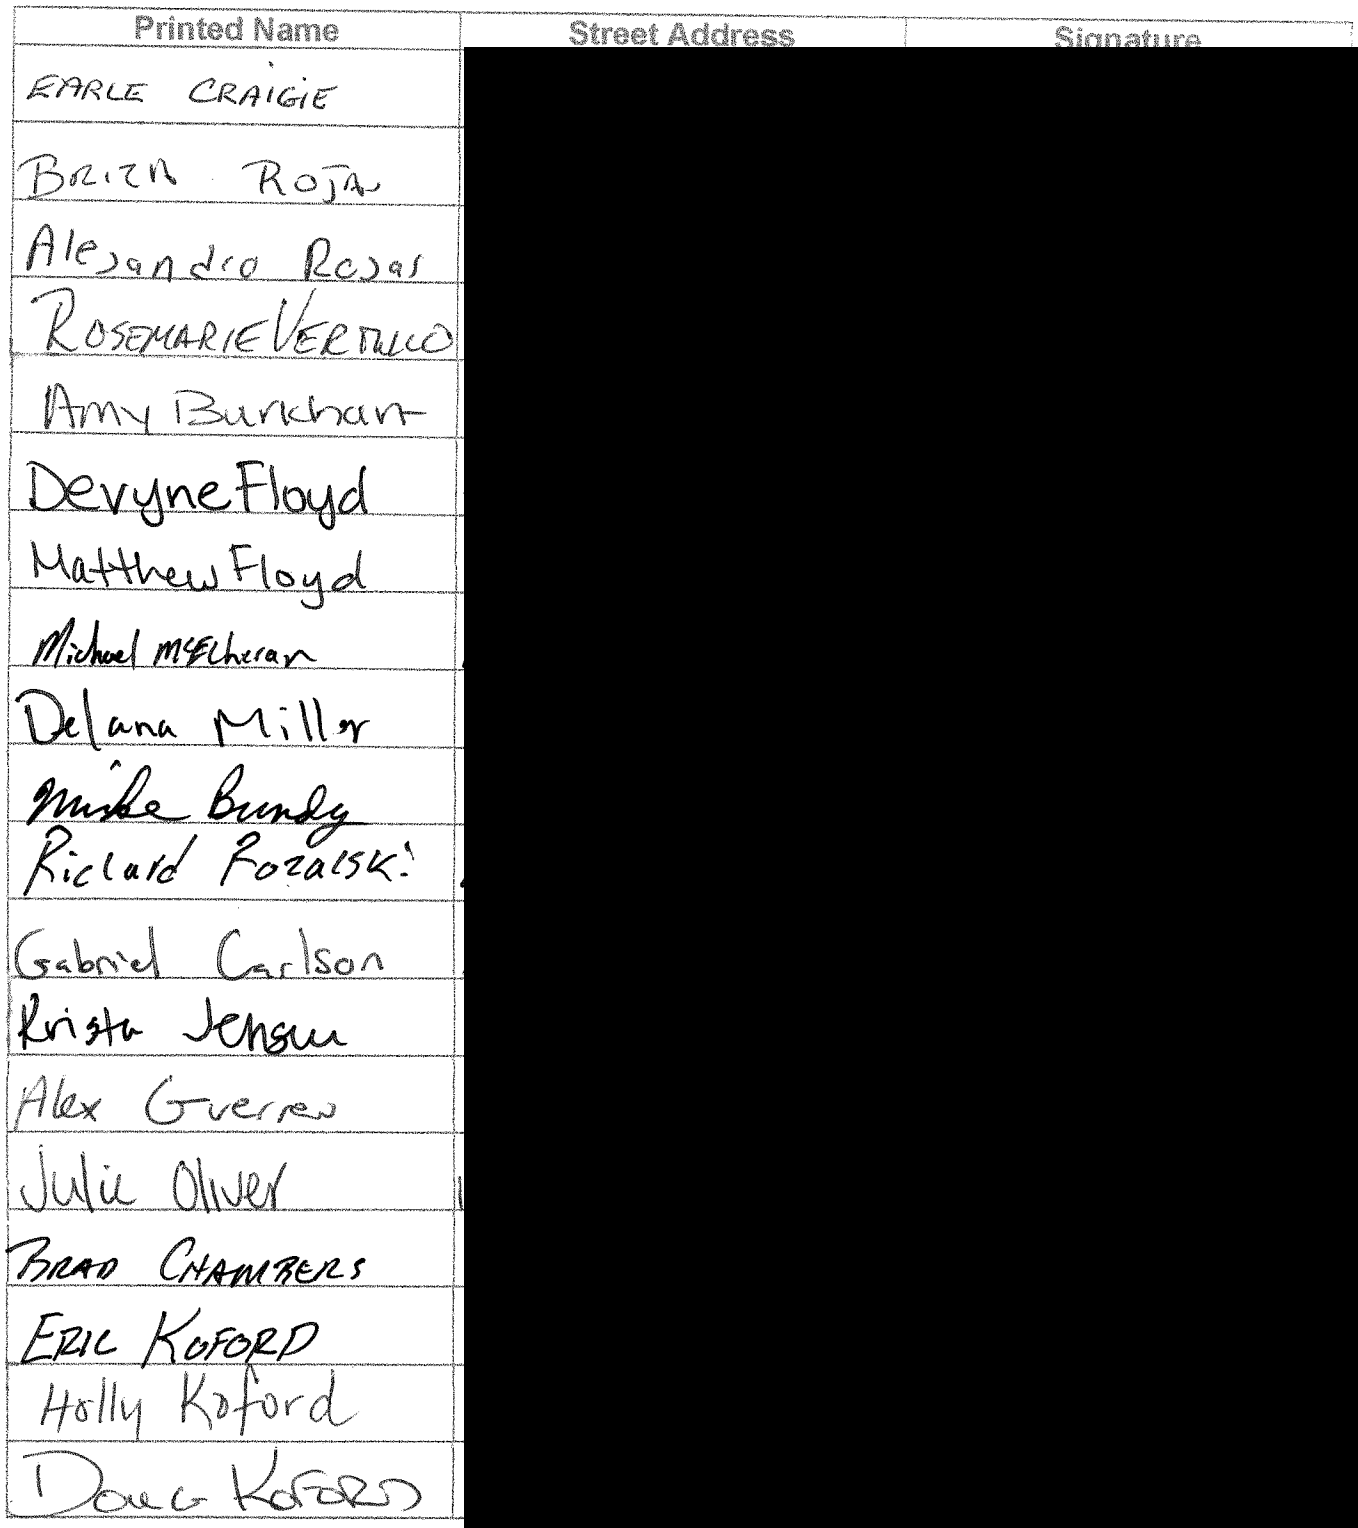 Printed Name Street Address Signature
EARLE CRAIGIE
BRIZA ROJA
Alejandro Rojas
ROSEMARIE VERTULLO
Amy Burkhart
Devyne Floyd
Matthew Floyd
Michael McElheran
Delana Miller
Mike Bundy
Richard Rozalski
Gabriel Carlson
Krista Jensen
Alex Guerrero
Julie Oliver
BRAD CHAMBERS
ERIC KOFORD
Holly Koford
DOUG KOFORD